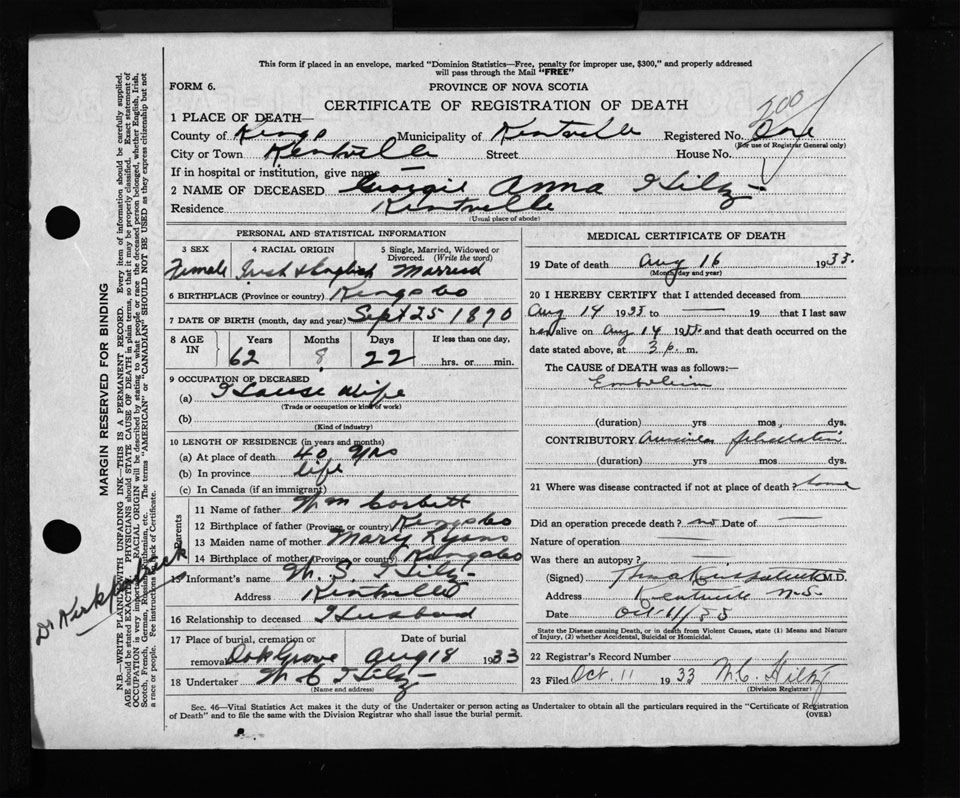 This form if placed in an envelope, marked "Dominion Statistics—Free, penalty for improper use, $300," and properly addressed
will pass through the Mail "FREE"
FORM 6.
PROVINCE OF NOVA SCOTIA
CERTIFICATE OF REGISTRATION OF DEATH
200
1 PLACE OF DEATH—
County of Kings Municipality of Kentville Registered No. One
(For use of Registrar General only)
City or Town Kentville Street House No.
If in hospital or institution, give name —
2 NAME OF DECEASED Georgie Anna Hilz
Residence Kentville
(Usual place of abode)
PERSONAL AND STATISTICAL INFORMATION
3 SEX 4 RACIAL ORIGIN 5 Single, Married, Widowed or
Divorced. (Write the word)
Female Irish & English Married
6 BIRTHPLACE (Province or country) Kings Co
7 DATE OF BIRTH (month, day and year) Sept 25 1870
8 AGE
IN
Years Months Days If less than one day,
62 8 22 hrs. or min.
9 OCCUPATION OF DECEASED
(a) House wife
(Trade or occupation or kind of work)
(b)
(Kind of industry)
10 LENGTH OF RESIDENCE (in years and months)
(a) At place of death 40 yrs
(b) In province life
(c) In Canada (if an immigrant)
Parents
11 Name of father Wm Corbett
12 Birthplace of father (Province or country) Kings Co
13 Maiden name of mother Mary Lyons
14 Birthplace of mother (Province or country) Kings Co
15 Informant's name W. S. Hilz
Address Kentville
16 Relationship to deceased Husband
17 Place of burial, cremation or Date of burial
removal Oak Grove Aug 18 1933
18 Undertaker W C Hilz
(Name and address)
MEDICAL CERTIFICATE OF DEATH
19 Date of death Aug 16 1933.
(Month, day and year)
20 I HEREBY CERTIFY that I attended deceased from
Aug 14 1933 to — 19 that I last saw
her alive on Aug 14 19 and that death occurred on
date stated above, at 3 p. m.
The CAUSE of DEATH was as follows:—
Embolism
(duration) yrs mos. dys.
CONTRIBUTORY Auricular fibrillation
(duration) yrs mos dys.
21 Where was disease contracted if not at place of death? home
Did an operation precede death? no Date of —
Nature of operation —
Was there an autopsy? —
(Signed) M.D.
Address Kentville N.S.
Date Oct
State the Disease causing Death, or in death from Violent Causes, state (1) Means and Nature
of Injury, (2) whether Accidental, Suicidal or Homicidal.
22 Registrar's Record Number
23 Filed Oct. 11 1933 W.C. Hiltz
(Division Registrar)
Sec. 46—Vital Statistics Act makes it the duty of the Undertaker or person acting as Undertaker to obtain all the particulars required in the "Certificate of Registration
of Death" and to file the same with the Division Registrar who shall issue the burial permit. (OVER)
MARGIN RESERVED FOR BINDING
N.B.—WRITE PLAINLY WITH UNFADING INK—THIS IS A PERMANENT RECORD. Every item of information should be carefully supplied.
AGE should be stated EXACTLY. PHYSICIANS should STATE CAUSE OF DEATH in plain terms, so that it may be properly classified. Exact statement of
OCCUPATION is very important. RACIAL ORIGIN will be described by stating to what people or race the deceased person belonged, whether English, Irish,
Scotch, French, German, Russian, Ruthenian, etc. The terms "AMERICAN" or "CANADIAN" SHOULD NOT BE USED as they express citizenship but not
a race or people. Fee instructions on back of Certificate.
Dr Kirkpatrick